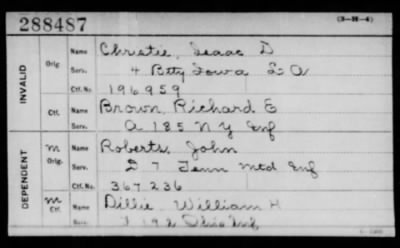 288487
(3-H-4)
INVALID
Orig.
Name Christie, Isaac D
Serv. 4 Btty Iowa L A
Ctf. No. 196959
Ctf.
Name Brown, Richard E
Serv. A 185 N Y Inf
DEPENDENT
m Orig.
Name Roberts, John
Serv. D 7 Tenn Mtd Inf
Ctf. No. 367236
m Ctf.
Name Dillie, William H
Serv. 192 Ohio Inf